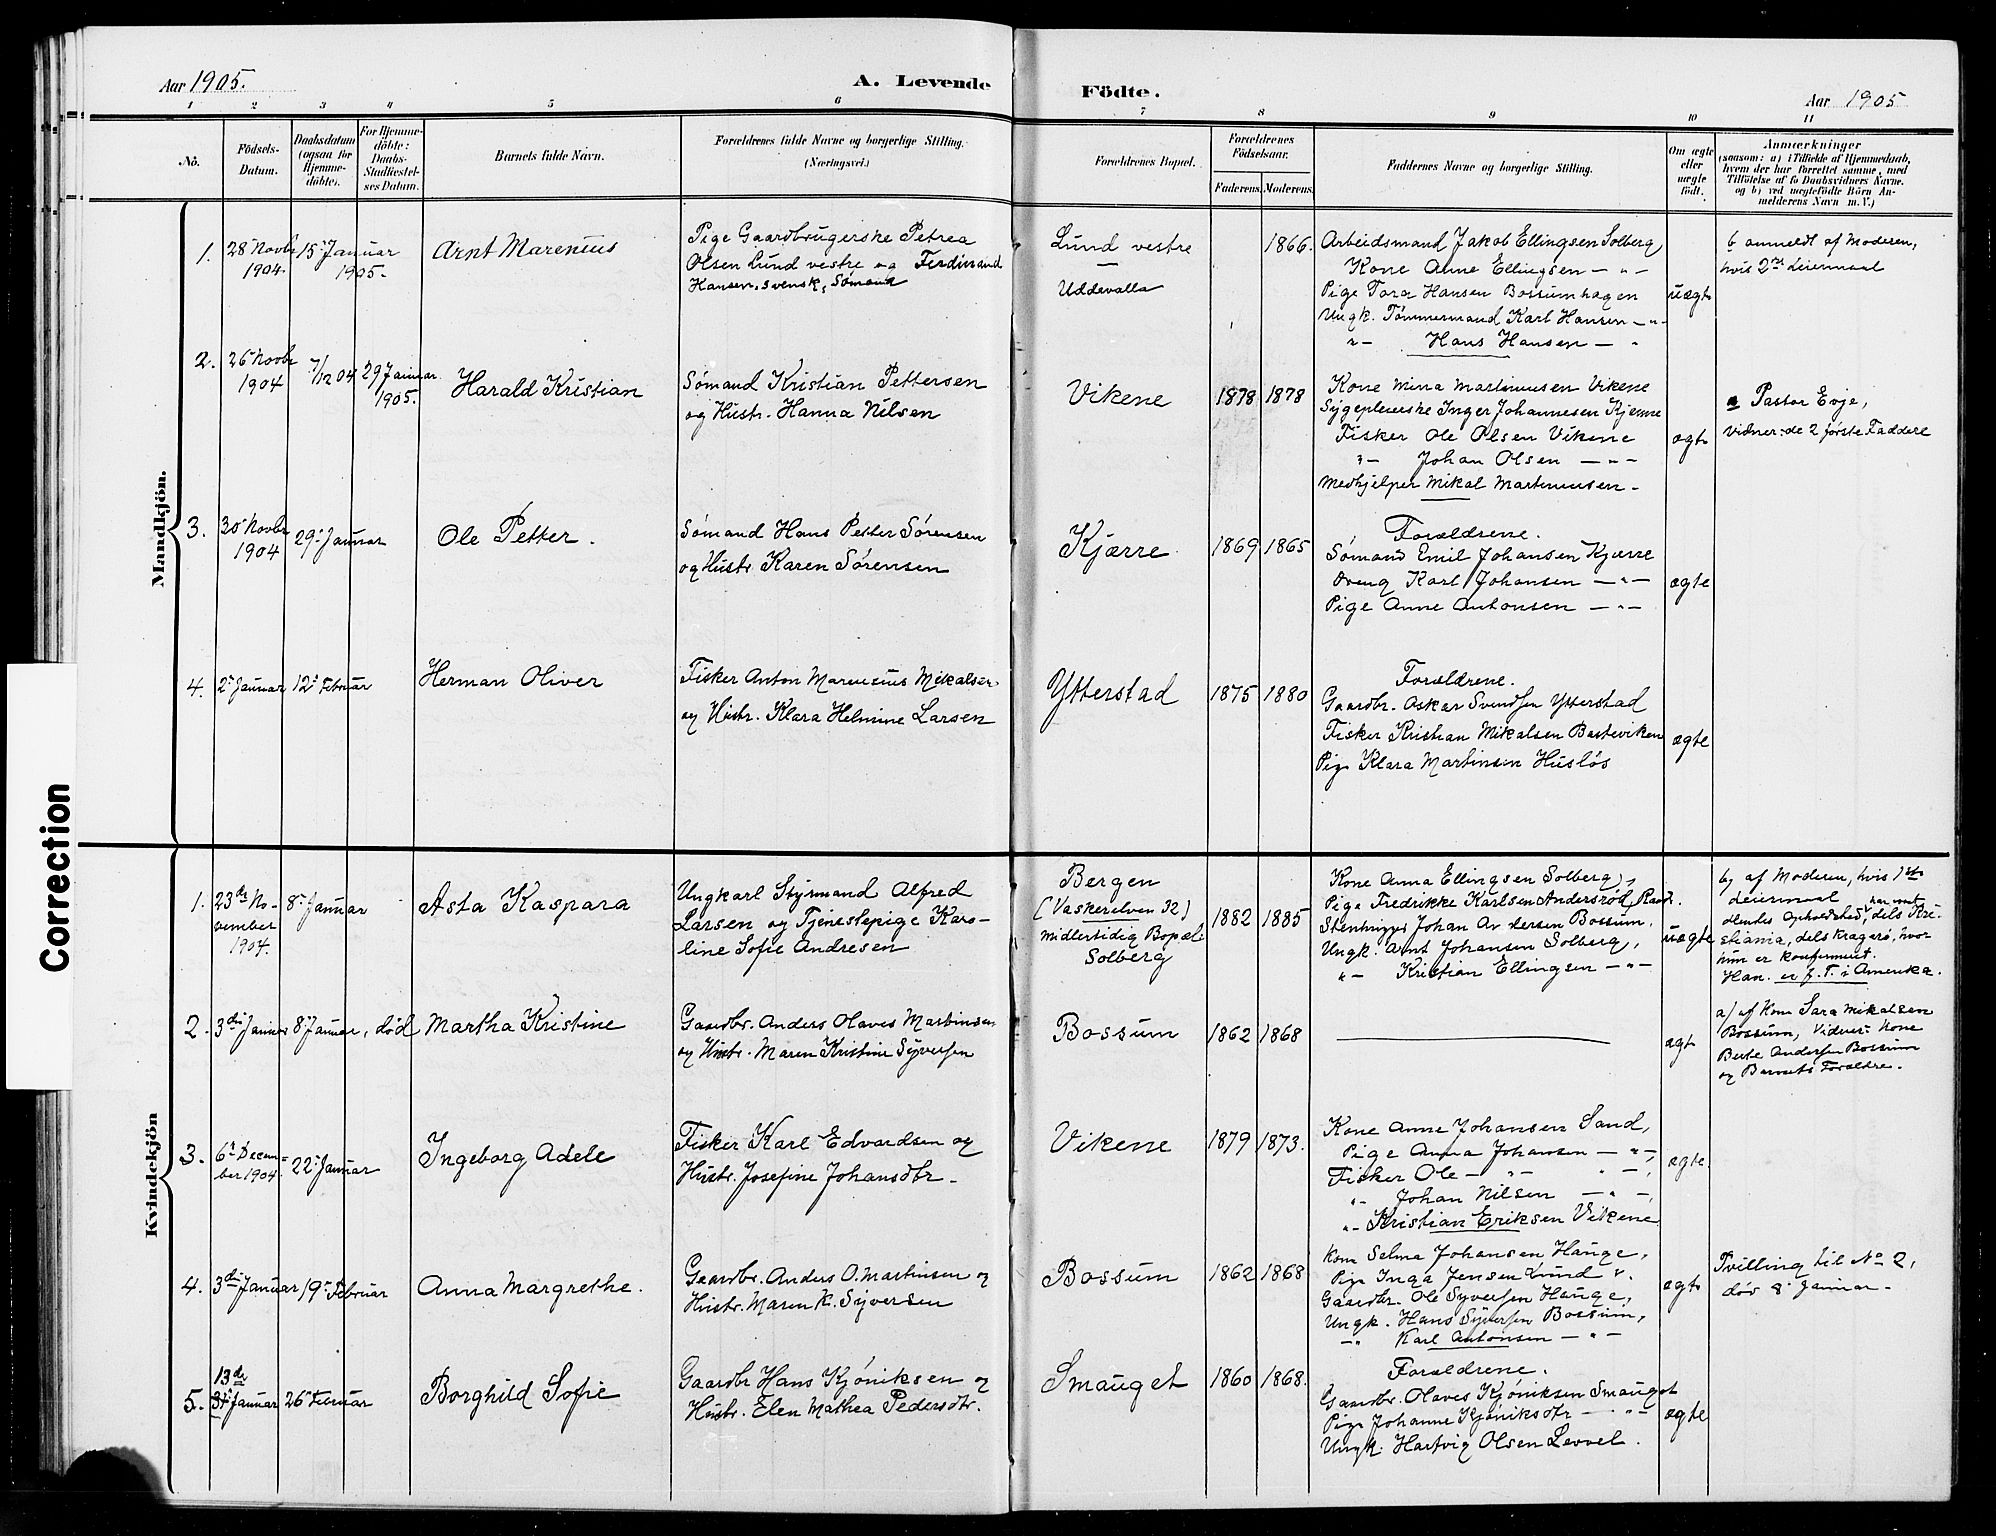 Aar 1905.
A. Levende
Födte.
Aar 1905
1 2 3 4 5 6 7 8 9 10 11
No.
Födsels-
Datum.
Daabsdatum
(ogsaa for
Hjemme-
döbte).
For Hjemme-
döbte:
Daabs-
Stadfæstel-
ses Datum.
Barnets fulde Navn.
Forældrenes fulde Navne og borgerlige Stilling.
(Næringsvei.)
Forældrenes Bopæl.
Forældrenes
Födselsaar.
Faderens. Moderens.
Faddernes Navne og borgerlige Stilling.
Om ægte
eller
uægte
født.
Anmærkninger
(saasom: a) i Tilfælde af Hjemmedaab,
hvem der har forrettet samme, med
Tilföielse af to Daabsvidners Navne.
og b) ved uægtefödte Börn An-
melderens Navn m. V.)
Mandkjön.
1.
28 Novbr
1904.
15 Januar
1905.
Arnt Marenius
Pige Gaardbrugerske Petrea
Olsen Lund vestre og Ferdinand
Hansen, svensk, Sømand
Lund vestre
—
Uddevalla
1866.
Arbeidsmand Jakob Ellingsen Solberg
Kone Anne Ellingsen — " —
Pige Tora Hansen Bossumhagen
Ungk. Tømmermand Karl Hansen — " -
" - Hans Hansen — "
uægt
b anmeldt af Moderen,
hvis 2det Leiermaal
2.
26 Novbr
1904
7/12 04
29 Januar
1905.
Harald Kristian
Sømand Kristian Pettersen
og Hustr. Hanna Nilsen
Vikene
1878
1878
Kone Mina Martinusen Vikene
Sygepleierske Inger Johannesen Kjenne
Fisker Ole Olsen Vikene
" - Johan Olsen — " -
Medhjelper Mikal Martinusen -
ægt
a Pastor Evje,
Vidner: de 2 første Faddere
3.
30 Novbr
1904
29 Januar
Ole Petter.
Sømand Hans Petter Sørensen
og Hustr. Karen Sørensen
Kjærre
1869
1865
Forældrene.
Sømand Emil Johansen Kjærre
Dreng Karl Johansen — " —
Pige Anne Antonsen — " —
ægte
4.
2 Januar
12 Februar
Herman Oliver
Fisker Anton Marensius Mikalsen
og Hustr. Klara Helmine Larsen
Ytterstad
1875
1880
Forældrene.
Gaardbr. Askar Svendsen Ytterstad
Fisker Kristian Mikalsen Basteviken
Pige Klara Martinsen Husløs
ægte
Correction
Kvindekjön
1.
23de No-
vember
1904.
8 Januar
Asta Kaspara
Ungkarl Styrmand Alfred
Larsen og Tjenestepige Karo-
line Sofie Andresen
Bergen
(Vaskerelven 32)
midlertidig Bopæl:
Solberg
1882
1885
Kone Anna Ellingsen Solberg,
Pige Fredrikke Karlsen Andersrød, Raade.
Stenhugger Johan Andersen Bossum.
Ungk. Arnt Johansen Solberg,
" - Kristian Ellingsen — " —
uægte
b, af Moderen, hvis 1ste
Leiermaal
dendes Opholdsted har vært dels Kri-
stiania, dels Kragerø, hvor
hun er konfirmeret.
Han er f. T. i Amerika.
2.
3die Januar
8 Januar, død
Martha Kristine
Gaardbr. Anders Olaves Martinsen
og Hustr. Maren Kristine Syversen
Bossum
1862
1868
ægt
a) af Kone Sara Mikalsen
Bossum, Vidner: Kone
Berte Andersen Bossum
og Barnets Forældre.
3.
6te Decem-
ber 1904.
22 Januar
Ingeborg Adele
Fisker Karl Edvardsen og
Hustr. Josefine Johansdtr.
Vikene
1879
1873.
Kone Anne Johansen Sand,
Pige Anna Johansen — " —,
Fisker Ole — " - " —,
" - Johan Nilsen — " —,
" - Kristian Eriksen Vikene
ægte.
4.
3die Januar
19 Februar
Anna Margrethe.
Gaardbr. Anders O. Martinsen og
Hustr. Maren K. Syversen
Bossum
1862
1868
Kone Selma Johansen Hauge,
Pige Inga Jensen Lund v.
Gaardbr. Ole Syversen Hauge,
Ungk. Hans Syversen Bossum,
— " Karl Antonsen — " —
ægt
Tvilling til No 2,
død 8 Januar -
5.
13de
31 Januar
26 Februar
Borghild Sofie
Gaardbr Hans Kjøniksen og
Hustr. Elen Mathea Pedersdtr.
Smauget
1860
1868.
Forældrene.
Gaardbr. Olaves Kjøniksen Smauget
Pige Johanne Kjøniksdtr — " —
Ungk. Hartvig Olsen Levvel.
ægte